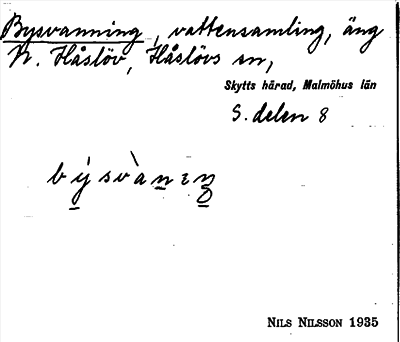 Bysvanning, vattensamling, äng
N. Håslöv, Håslövs sn,
Skytts härad, Malmöhus län
S. delen 8
NILS NILSSON 1935